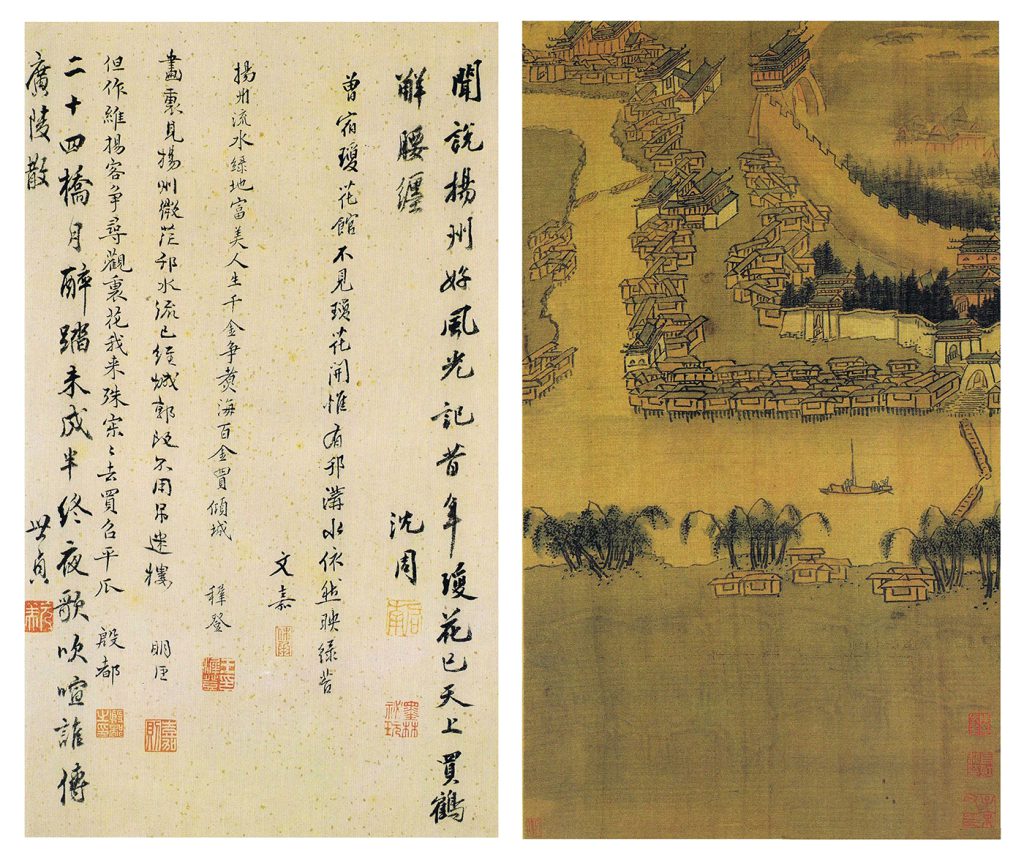 聞說揚州好風光記昔年瓊花已天上買鶴
解腰纏
沈周
曾宿瓊花館不見瓊花開惟有邗溝水依然映綠苔
文嘉
揚州流水綠地富美人生千金爭黃海百金買傾城
穉登
畫裏見揚州微茫邗水流已經城郭改不用吊迷樓
明臣
但作維揚客爭尋觀裏花我来殊寂〻去買召平瓜
殷都
二十四橋月醉踏未成半終夜歌吹喧誰傳
廣陵散
世貞